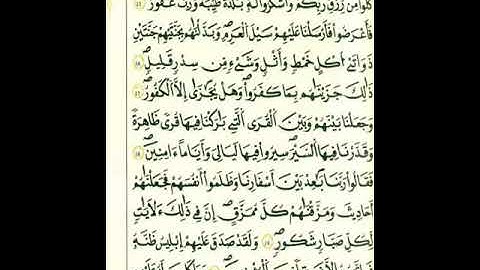 كُلُواْ مِن رِّزْقِ رَبِّكُمْ وَاشْكُرُواْ لَهُۥ بَلْدَةٌ طَيِّبَةٌ وَرَبٌّ غَفُورٌ
فَأَعْرَضُواْ فَأَرْسَلْنَا عَلَيْهِمْ سَيْلَ الْعَرِمِ وَبَدَّلْنَٰهُم بِجَنَّتَيْهِمْ جَنَّتَيْنِ
ذَوَاتَيْ أُكْلٍ خَمْطٍ وَأَثْلٍ وَشَيْءٍ مِّن سِدْرٍ قَلِيلٍ
ذَٰلِكَ جَزَيْنَٰهُم بِمَا كَفَرُواْ وَهَلْ يُجَٰزَىٰ إِلَّا الْكَفُورُ
وَجَعَلْنَا بَيْنَهُمْ وَبَيْنَ الْقُرَى الَّتِي بَٰرَكْنَا فِيهَا قُرًى ظَٰهِرَةً
وَقَدَّرْنَا فِيهَا السَّيْرَ سِيرُواْ فِيهَا لَيَالِيَ وَأَيَّاماً ءَامِنِينَ
فَقَالُواْ رَبَّنَا بَٰعِدْ بَيْنَ أَسْفَارِنَا وَظَلَمُواْ أَنفُسَهُمْ فَجَعَلْنَٰهُمْ
أَحَادِيثَ وَمَزَّقْنَٰهُمْ كُلَّ مُمَزَّقٍ إِنَّ فِي ذَٰلِكَ لَأٓيَٰتٍ
لِّكُلِّ صَبَّارٍ شَكُورٍ ١٩ وَلَقَدْ صَدَقَ عَلَيْهِمْ إِبْلِيسُ ظَنَّهُۥ